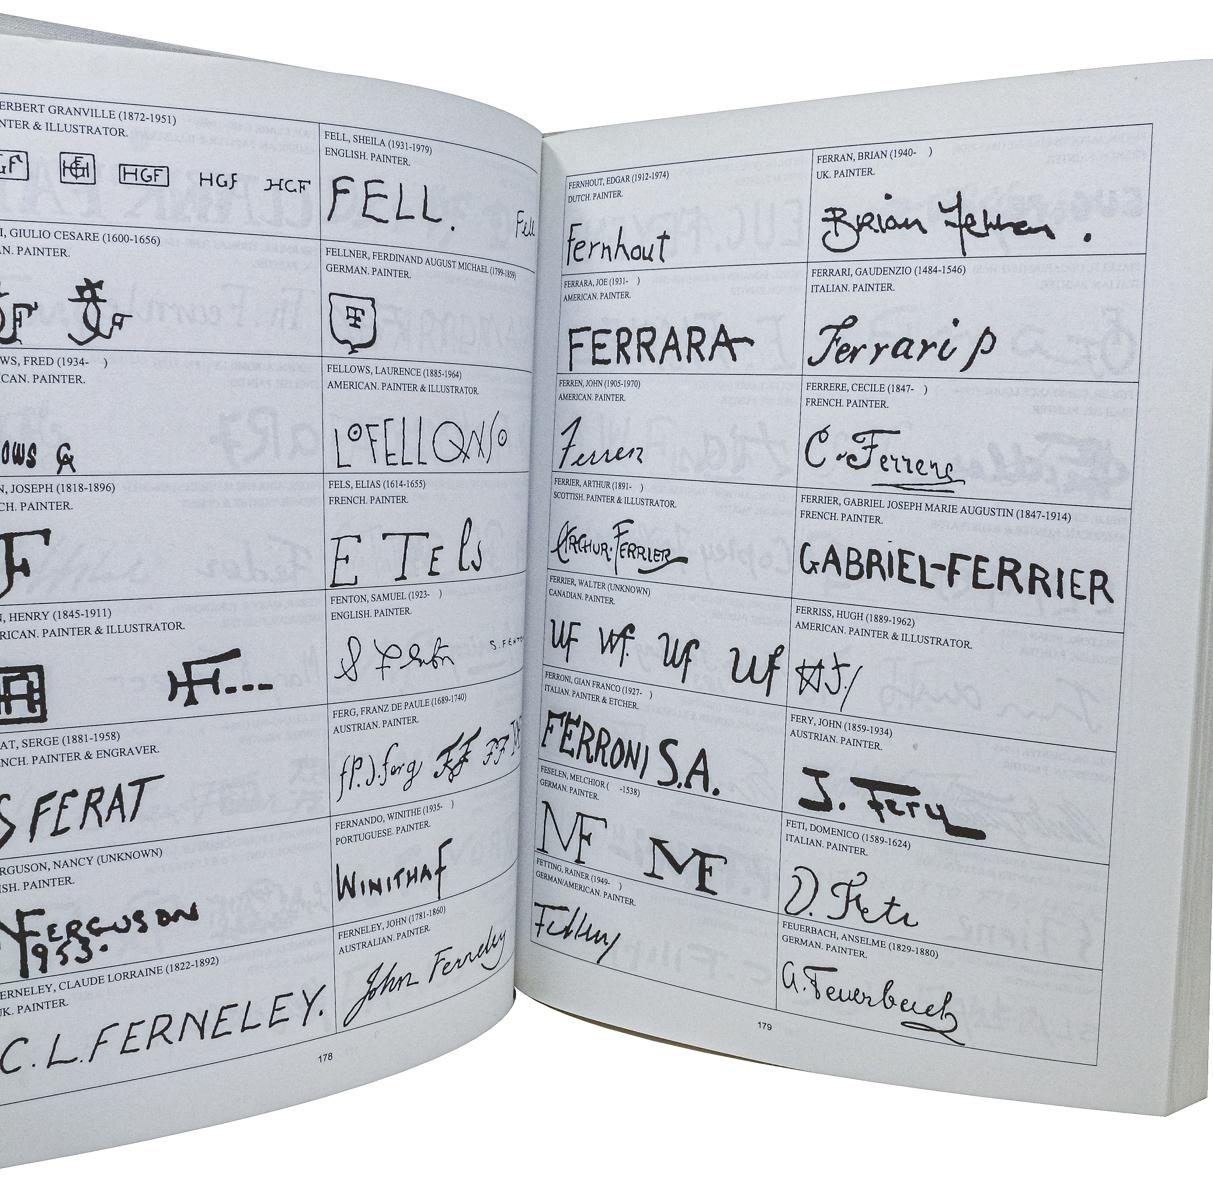 ERBERT GRANVILLE (1872-1951)
NTER & ILLUSTRATOR.
GF HGF HGF HGF HGF
FELL, SHEILA (1931-1979)
ENGLISH. PAINTER.
FELL. Fell
I, GIULIO CESARE (1600-1656)
AN. PAINTER.
FELLNER, FERDINAND AUGUST MICHAEL (1799-1859)
GERMAN. PAINTER.
WS, FRED (1934- )
ICAN. PAINTER.
OWS
FELLOWS, LAURENCE (1885-1964)
AMERICAN. PAINTER & ILLUSTRATOR.
N, JOSEPH (1818-1896)
CH. PAINTER.
F
FELS, ELIAS (1614-1655)
FRENCH. PAINTER.
N, HENRY (1845-1911)
RICAN. PAINTER & ILLUSTRATOR.
FENTON, SAMUEL (1923- )
ENGLISH. PAINTER.
S Fenton S. FENTO
AT, SERGE (1881-1958)
NCH. PAINTER & ENGRAVER.
S FERAT
FERG, FRANZ DE PAULE (1689-1740)
AUSTRIAN. PAINTER.
RGUSON, NANCY (UNKNOWN)
ISH. PAINTER.
N FERGUSON
1953.
FERNANDO, WINITHE (1935- )
PORTUGUESE. PAINTER.
WINITHAF
ERNELEY, CLAUDE LORRAINE (1822-1892)
UK. PAINTER.
C. L. FERNELEY.
FERNELEY, JOHN (1781-1860)
AUSTRALIAN. PAINTER.
John Ferneley
178
FERNHOUT, EDGAR (1912-1974)
DUTCH. PAINTER.
Fernhout
FERRAN, BRIAN (1940- )
UK. PAINTER.
Brian Ferran.
FERRARA, JOE (1931- )
AMERICAN. PAINTER.
FERRARA
FERRARI, GAUDENZIO (1484-1546)
ITALIAN. PAINTER.
Ferrari p
FERREN, JOHN (1905-1970)
AMERICAN. PAINTER.
Ferren
FERRERE, CECILE (1847- )
FRENCH. PAINTER.
C. Ferrere
FERRIER, ARTHUR (1891- )
SCOTTISH. PAINTER & ILLUSTRATOR.
ARTHUR. FERRIER
FERRIER, GABRIEL JOSEPH MARIE AUGUSTIN (1847-1914)
FRENCH. PAINTER.
GABRIEL-FERRIER
FERRIER, WALTER (UNKNOWN)
CANADIAN. PAINTER.
WF Wf. Wf Wf
FERRISS, HUGH (1889-1962)
AMERICAN. PAINTER & ILLUSTRATOR.
FERRONI, GIAN FRANCO (1927- )
ITALIAN. PAINTER & ETCHER.
FERRONI S.A.
FERY, JOHN (1859-1934)
AUSTRIAN. PAINTER.
J. Fery
FESELEN, MELCHIOR ( -1538)
GERMAN. PAINTER.
MF MF
FETI, DOMENICO (1589-1624)
ITALIAN. PAINTER.
D. Feti
FETTING, RAINER (1949- )
GERMAN/AMERICAN. PAINTER.
Fetting
FEUERBACH, ANSELME (1829-1880)
GERMAN. PAINTER.
A. Feuerbach
179